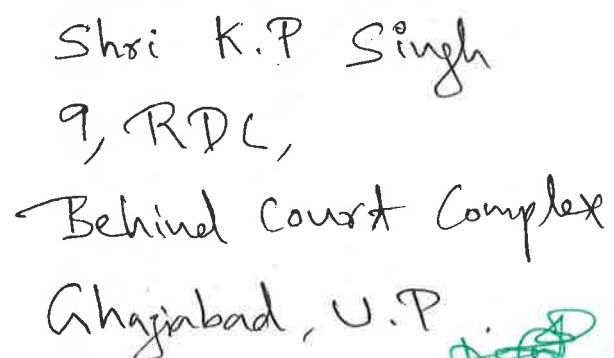 Shri K.P Singh
9, RDC,
Behind Court Complex
Ghaziabad, U.P.